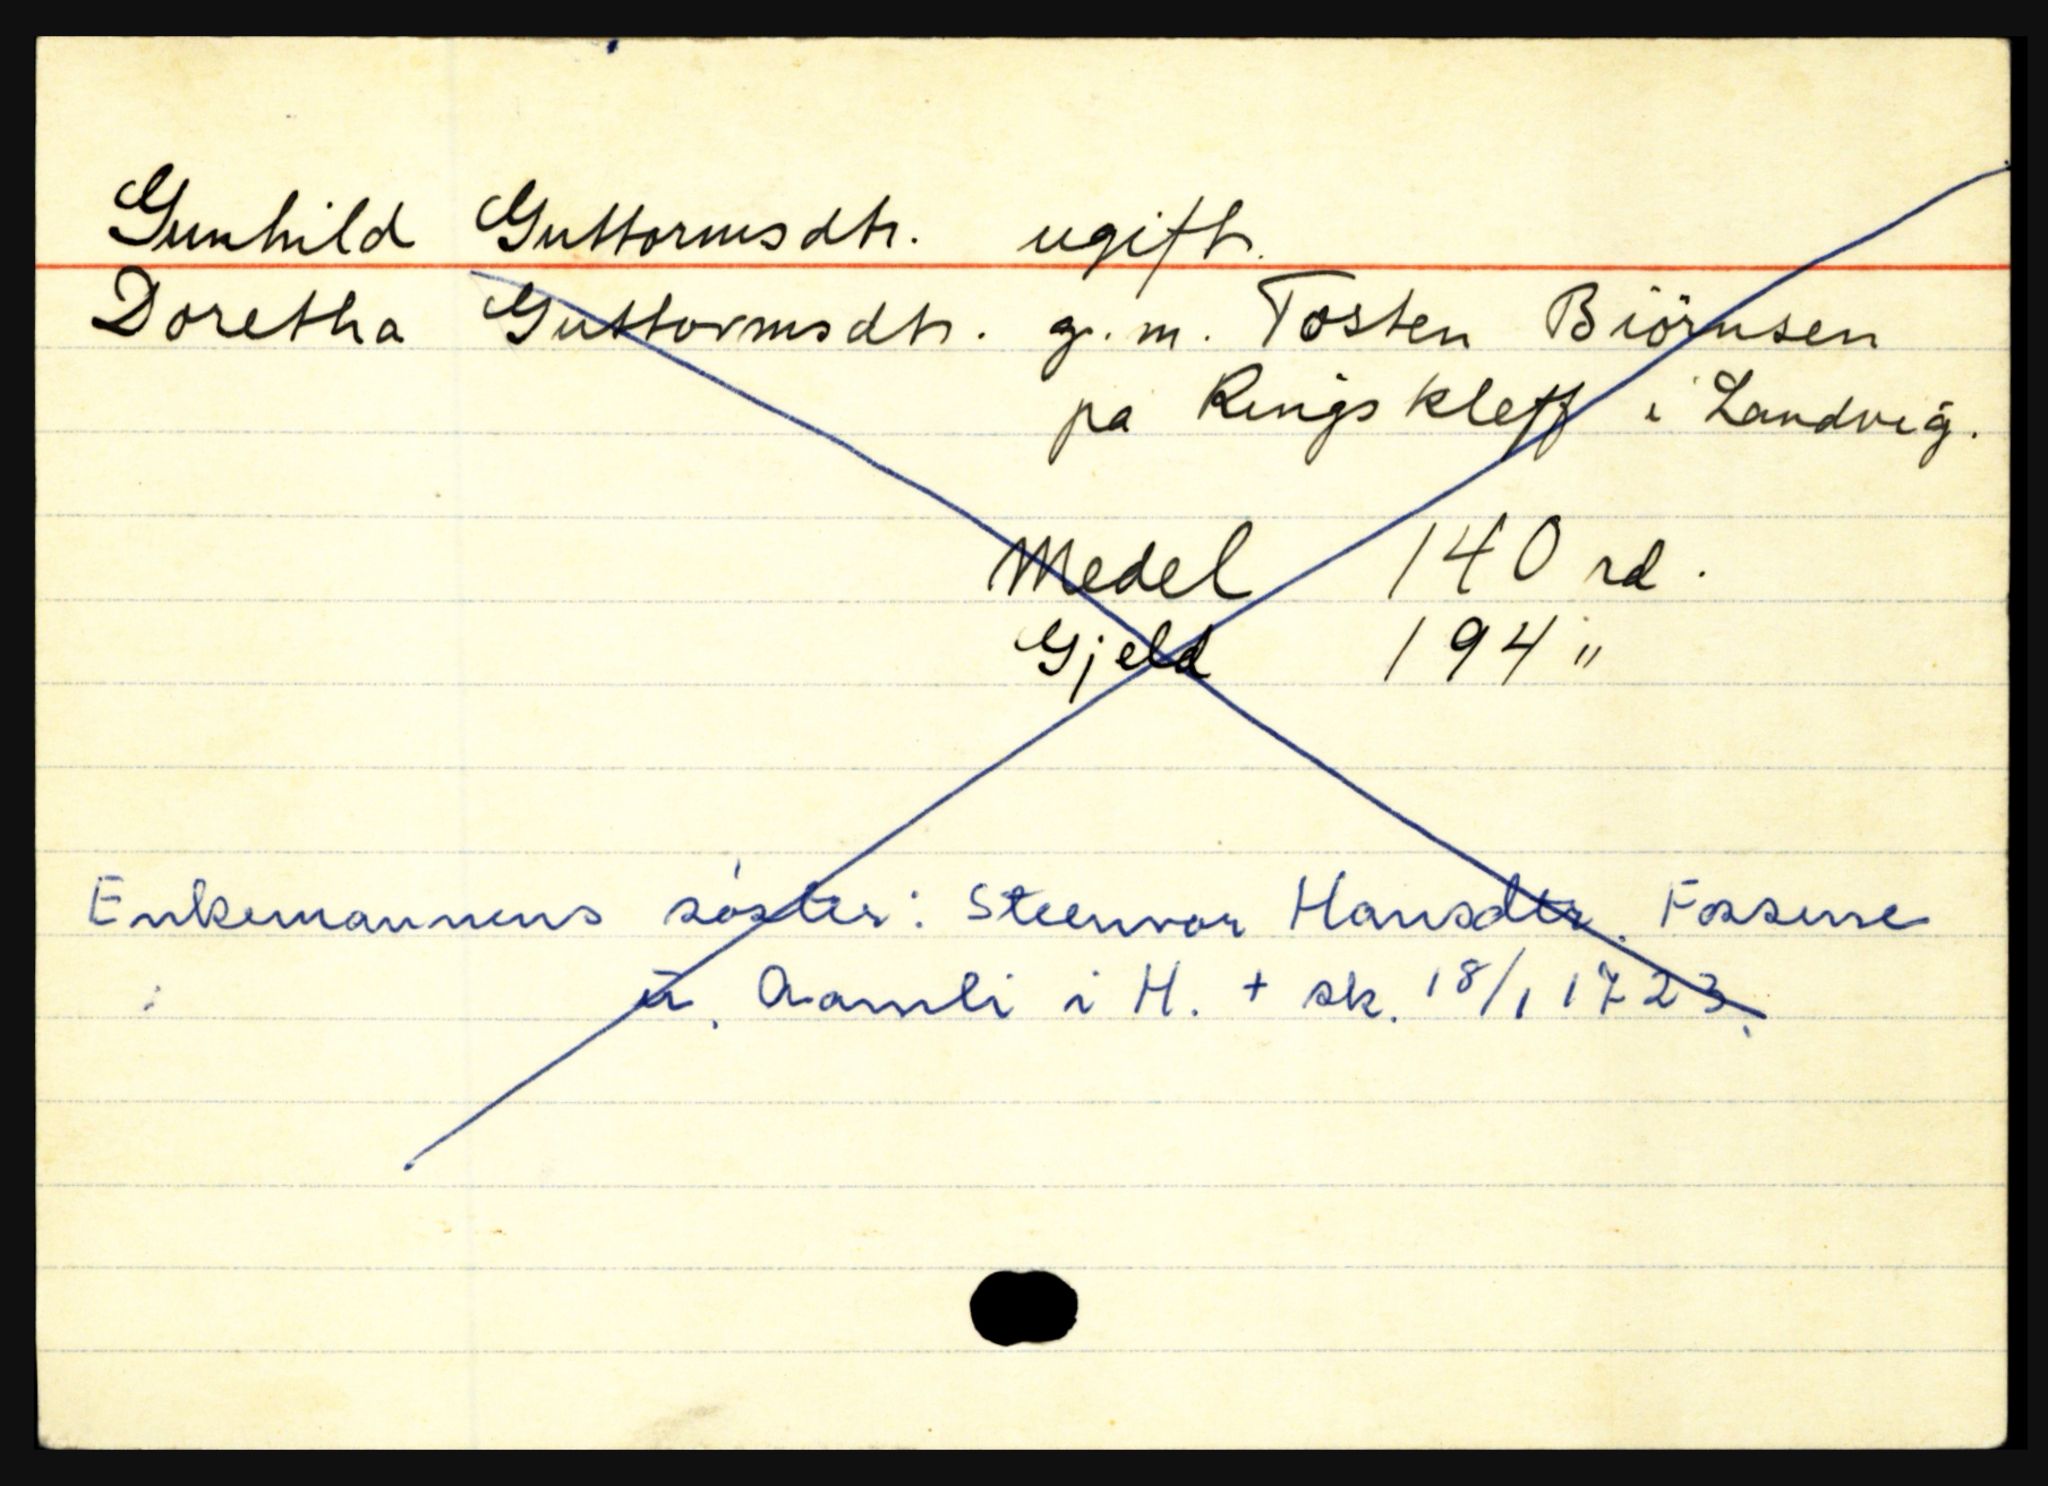 Gunhild Guttormsdtr. ugift.
Doretha Guttormsdtr. g.m. Tosten Biörnsen
på Ringskleff i Landvig.
Medel 140 rd.
Gjeld 194 "
Enkemannens søster: Steenvor Hansdtr. Fossene
u. Aamli i H. + sk. 18/1 1723.